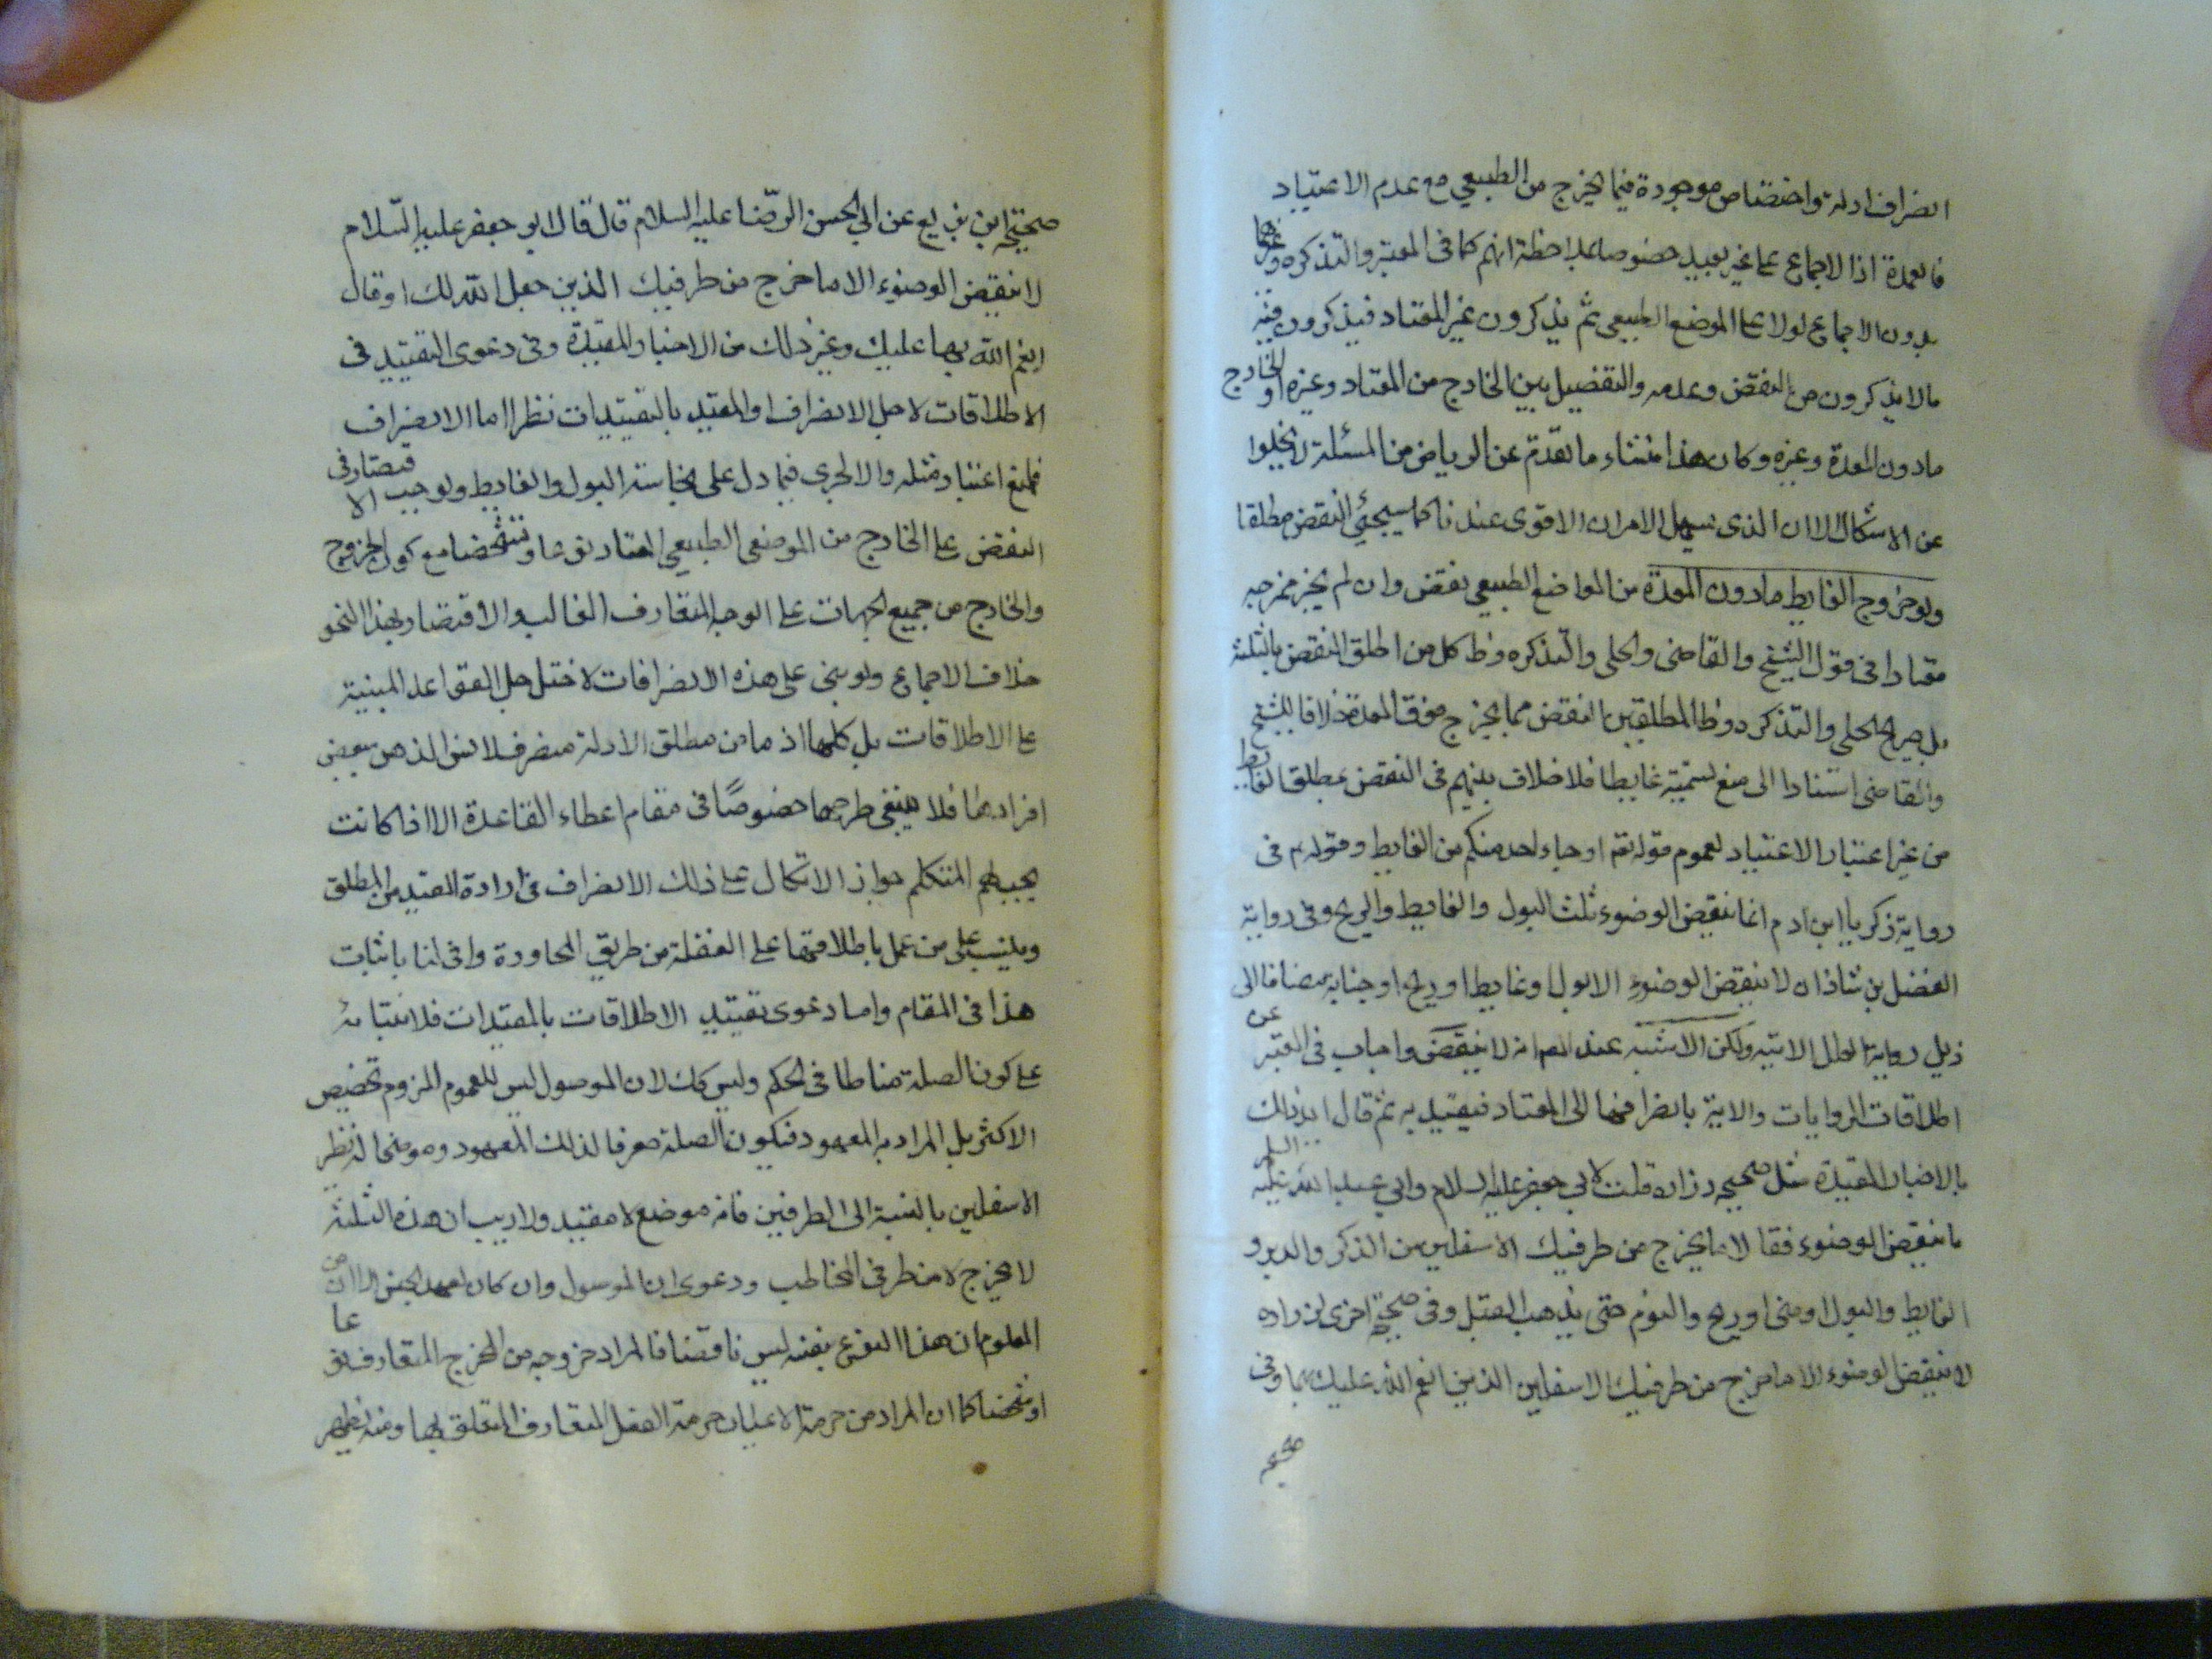 انصراف ادلة واختصاص موجودة فيما يخرج من الطبيعي مع عدم الاعتياد
فالعمدة اذا الاجماع على غير بعيد خصوصا بملاحظة انهم كما في المعتبر والتذكره وغيرها
يدون الاجماع اولا على الموضع الطبيعي ثم يذكرون غير المعتاد فيذكرون فيه
مالا يذكرون من النقض وعدمه والتفصيل بين الخارج من المعتاد وغيره او الخارج
مادون المعدة وغيره وكان هذا منشاء ما تقدم عن الرياض من المسئلة لا يخلوا
عن الاشكال الا ان الذي يسهل الامر ان الاقوى عندنا كما سيجئ النقض مطلقا
ولو خروج الغايط مادون المعدة من المواضع الطبيعي نقض وان لم يخرجه
معتادا في قول الشيخ والقاضي والحلى والتذكره وظ كل من اطلق النقض بالثلثة
بل صريح الحلى والتذكره وظ المطلقين النقض مما يخرج فوق المعدة خلافا للشيخ
والقاضي استنادا الى منع تسميته غايطا فلا خلاف بينهم في النقض بمطلق الغايط
من غير اعتبار الاعتياد لعموم قوله تعم او جاء احد منكم من الغايط وقوله ع في
رواية ذكريا ابن ادم انما ينقض الوضوء ثلث البول والغايط والريح وفي رواية
الفضل بن شاذان لا ينقض الوضوء الا بول او غايط او ريح او جنابة مضافا الى
ذيل رواية العلل الاتيه ولكن الاشبه عند المص انه لا ينقض واجاب في المعتبر عن
اطلاقات الروايات والاية بانصرافها الى المعتاد فيقيد به ثم قال ايد ذلك
بالاخبار المقيدة مثل صحيحه زراره قلت لابي جعفر عليه السلام وابي عبد الله عليه السلم
ما ينقض الوضوء فقالا ما يخرج من طرفيك الاسفلين من الذكر والدبر و
الغايط والبول او منى او ريح والنوم حتى يذهب العقل وفي صحيحة اخرى لزراره
لا ينقض الوضوء الا ما خرج من طرفيك الاسفلين الذين انعم الله عليك بهما وفي
صحيحه
صحيحة ابن بزيع عن ابي الحسن الرضا عليه السلام قال قال لابو جعفر عليه السلام
لا ينقض الوضوء الا ما خرج من طرفيك الذين جعل الله لك او قال
انعم الله بهما عليك وغير ذلك من الاخبار المقيدة وفي دعوى التقييد في
الاطلاقات لاجل الانصراف او المقيد بالتقييدات نظر اما الانصراف
فلمنع اعتبار مثله والا لجرى فيما دل على نجاسة البول والغايط ولوجب الاقتصار في
النقض على الخارج من الموضع الطبيعي المعتاد نوعا وشخصا مع كون الخروج
والخارج من جميع الجهات على الوجه المتعارف الغالب والاقتصار بهذا النحو
خلاف الاجماع ولو بنى على هذه الانصرافات لاختل جل القواعد المبنية
على الاطلاقات بل كلها اذ ما من مطلق الادلة منصرف لانس الذهن ببعض
افرادها فلا ينبغي طرحها خصوصًا في مقام اعطاء القاعدة الا اذا كانت
بحيث المتكلم جواز الاتكال على ذلك الانصراف في ارادة المقيد من المطلق
وينسب على من عمل باطلاقها على الغفلة من طريق المحاورة وانى لنا باثبات
هذا في المقام واما دعوى تقييد الاطلاقات بالمقيدات فلابتنائه
على كون الصلة مناطا في الحكم وليس كك لان الموصول ليس للعموم للزوم تخصيص
الاكثر بل المراد به المعهود فيكون الصلة معرفا لذلك المعهود وموضحا له نظر
الاسفلين بالنسبة الى الطرفين فانه موضع لا مقيد ولا ريب ان هذه الثلثة
لا يخرج لا من طرفى المخاطب ودعوى ان الموصول وان كان لعهد الجنس الا ان من
المعلوم ان هذا النوع بنفسه ليس ناقضا فالمراد خروجه من المخرج المتعارف نوعا
او شخصا كما ان المراد من حرمة الاعيان حرمة الفعل المتعارف المتعلق بها ومنه يظهر